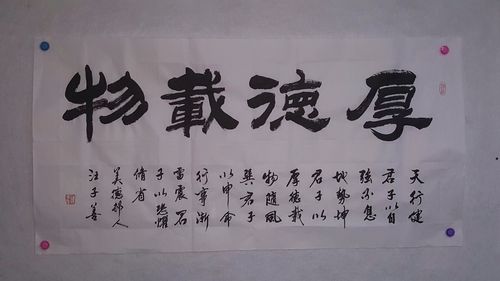 厚德載物
天行健
君子以自
強不息
地勢坤
君子以
厚德載
物隨風
巽君子
以申命
行事洊
雷震君
子以恐懼
脩省
美德人
汪子善